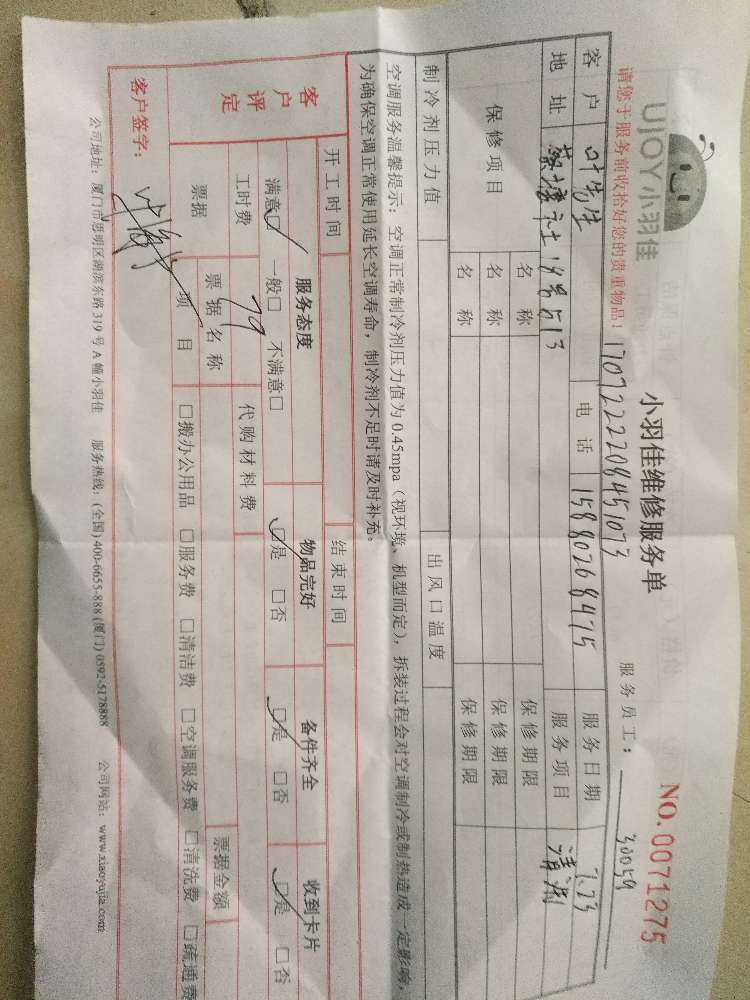 UJOY小羽佳
小羽佳维修服务单
NO.0071275
请您于服务前收拾好您的贵重物品！
服务员工：30059
客户 叶先生 电话 15880268475 服务日期 7.23
地址 513 服务项目 清洗
保修项目 名称 保修期限
名称 保修期限
名称 保修期限
制冷剂压力值 出风口温度
空调服务温馨提示：空调正常制冷剂压力值为0.45mpa（视环境、机型而定），拆装过程会对空调制冷或制热造成一定影响，
为确保空调正常使用延长空调寿命，制冷剂不足时请及时补充。
开工时间 结束时间
客户评定 服务态度 物品完好 备件齐全 收到卡片
满意□ 一般□ 不满意□ □是 □否 □是 □否 □是 □否
工时费 79 代购材料费
票据 票据名称 票据金额
项目 □搬办公用品 □服务费 □清洁费 □空调服务费 □清洗费 □疏通费
客户签字：
公司地址：厦门市思明区湖滨东路319号A幢小羽佳 服务热线：(全国) 400-6655-888 (厦门) 0592-5178888 公司网站：www.xiaoyujia.com